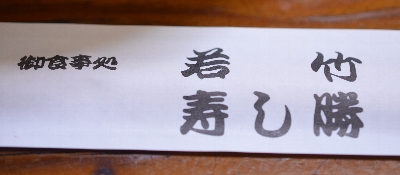 御食事処
若竹
寿し勝